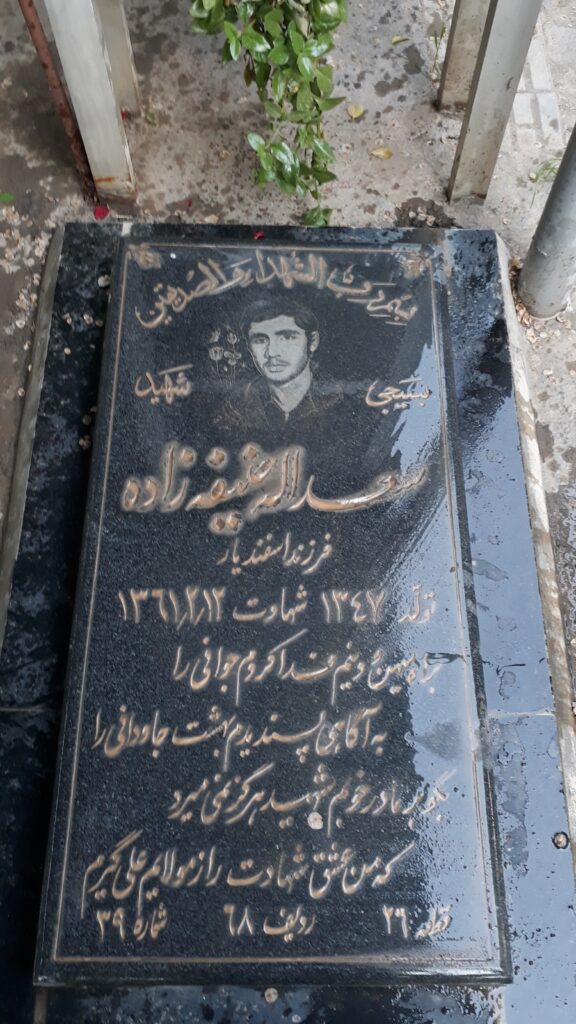 بسم رب الشهداء و الصدیقین
بسیجی شهید
سعداله زاده
فرزند اسفندیار
تولد ۱۳۴۷ شهادت ۱۳۶۱٫۲٫۱۲
براه میهن و دینم فدا کردم جوانی را
به آگاهی پسندیدم بهشت جاودانی را
بگو بر مادر خوبم شهید هرگز نمی میرد
که من عشق شهادت را ز مولایم علی گیرم
قطعه ۲۶ ردیف ۶۸ شماره ۳۹